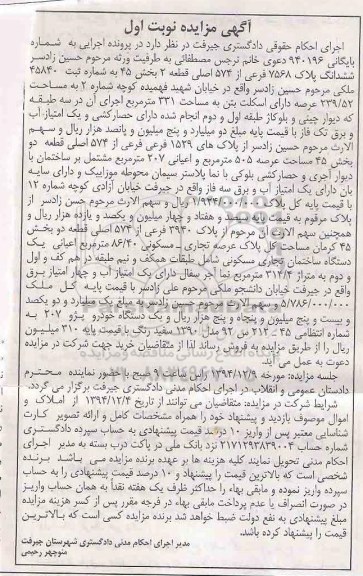 آگهی مزایده نوبت اول
اجرای احکام حقوقی دادگستری جیرفت در نظر دارد در پرونده اجرایی به شماره
بایگانی ۹۴۰۱۹۶ دعوی خانم نرجس مصطفائی به طرفیت ورثه مرحوم حسین زادسر
ششدانگ پلاک ۷۵۶۸ فرعی از ۵۷۴ اصلی قطعه ۲ بخش ۴۵ به شماره ثبت ۴۵۸۴۰
ملکی مرحوم حسین زادسر واقع در خیابان شهید فهمیده کوچه شماره ۲ به مساحت
۲۳۹/۵۲ عرصه دارای اسکلت بتن به مساحت ۳۳۱ مترمربع اجرای آن در سه طبقه
که دیوار چینی و بلوکاژ طبقه اول و دوم انجام شده دارای حصارکشی و یک امتیاز آب
و برق تک فاز با قیمت پایه مبلغ دو میلیارد و پنج میلیون و پانصد هزار ریال و سهم
الارث مرحوم حسین زادسر از پلاک های ۱۵۲۹ فرعی فرعی از ۵۷۴ اصلی قطعه دو
بخش ۴۵ مساحت عرصه ۵۰۵ مترمربع و اعیانی ۲۰۷ مترمربع مشتمل بر ساختمان با
دیوار آجری و حصارکشی بلوکی با نما پلاستر سیمان محوطه موزاییک و دارای سایه
بان دارای یک امتیاز آب و برق سه فاز واقع در جیرفت خیابان آزادی کوچه شماره ۱۲
با قیمت پایه کل پلاک ریال و سهم الارث مرحوم حسن زادسر از
پلاک مرقوم به قیمت پایه سیصد و هفتاد و چهار میلیون و یکصد و یازده هزار ریال و
همچنین سهم الارث آن مرحوم از پلاک ۳۹۴۰ فرعی از ۵۷۴ اصلی قطعه دو بخش
۴۵ کرمان مساحت کل پلاک عرصه تجاری ـ مسکونی ۸۶/۴۰ مترمربع اعیانی یک
دستگاه ساختمان تجاری مسکونی شامل طبقات همکف و نیم طبقه در هم کف و اول
و دوم به متراژ ۳۱۴/۴ مترمربع نما آجر سفال دارای یک امتیاز آب و چهار امتیاز برق
واقع در جیرفت خیابان دانشجو ملکی مرحوم علی زادسر با قیمت پایه کل ملک
۵/۷۸۶/۰۰۰/۰۰۰ و سهم الارث مرحوم حسین زادسر به مبلغ یک میلیارد و دو یکصد
و بیست و پنج میلیون و پنجاه و پنج هزار ریال و یک دستگاه خودرو پژو ۲۰۷ به
شماره انتظامی ۴۵ - ۲۱۴ س ۹۲ مدل ۱۳۹۰ سفید رنگ با قیمت پایه ۳۱۰ میلیون
ریال را از طریق مزایده به فروش رساند لذا از متقاضیان خرید جهت شرکت در مزایده
دعوت به عمل می آید
جلسه مزایده: مورخه ۱۳۹۴/۱۲/۹ این ساعت ۹ صبح با حضور نماینده محترم
دادستان عمومی و انقلاب در اجرای احکام مدنی دادگستری جیرفت برگزار می گردد.
شرایط شرکت در مزایده: متقاضیان می توانند از تاریخ ۱۳۹۴/۱۲/۴ از املاک و
اموال موصوف بازدید و پیشنهاد خود را همراه مشخصات کامل و ارائه تصویر کارت
شناسایی معتبر پس از واریز ۱۰ درصد قیمت پیشنهادی به حساب سپرده دادگستری
شماره حساب ۲۱۷۱۲۹۲۸۳۹۰۰۴ نزد بانک ملی در پاکت درب بسته به مدیر اجرای
احکام مدنی تحویل نمایند کلیه هزینه ها بر عهده برنده مزایده می باشد برنده
شخصی است که بالاترین قیمت را پیشنهاد و ۱۰ درصد قیمت پیشنهادی را به حساب
سپرده واریز نموده و مابقی بهاء را حداکثر ظرف یک هفته نقداً به همان حساب واریز
در صورت انصراف یا عدم پرداخت مابقی بهاء در فرجه مقرر پس از کسر هزینه مزایده
مبلغ پیشنهادی به نفع دولت ضبط خواهد شد برنده مزایده کسی است که بالاترین
قیمت را پیشنهاد کرده باشد.
مدیر اجرای احکام مدنی دادگستری شهرستان جیرفت
منوچهر رحیمی